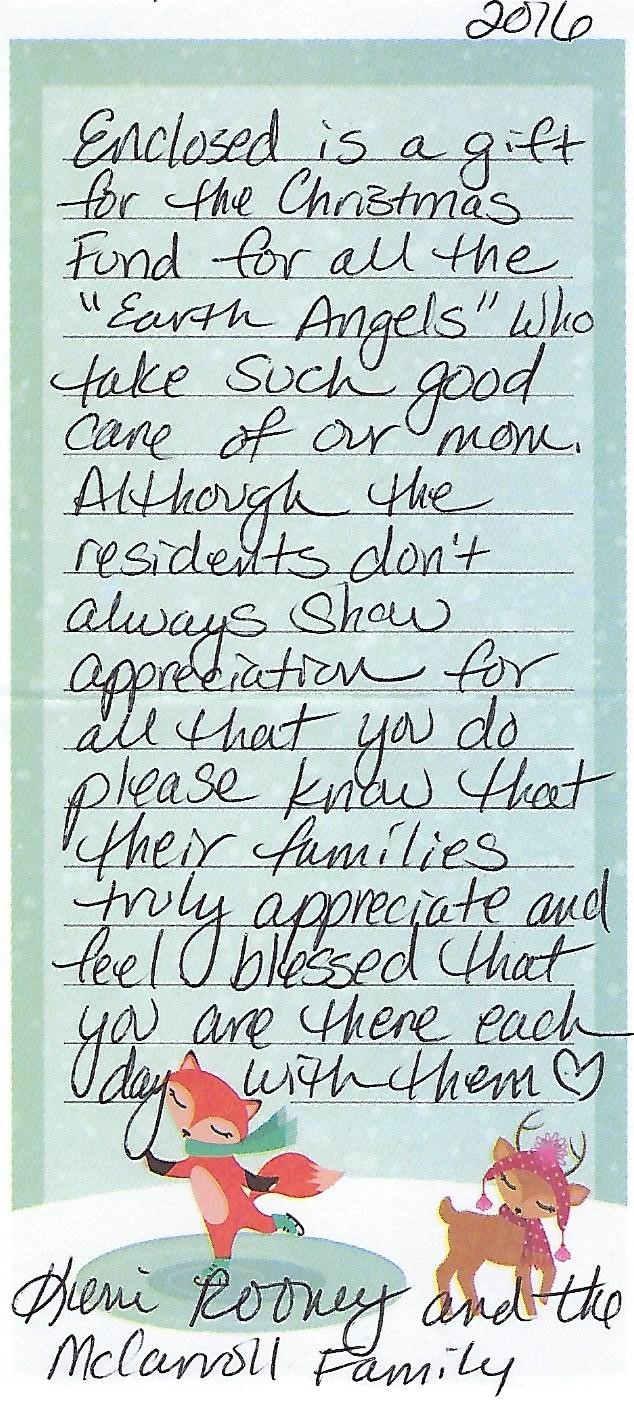 2016
Enclosed is a gift
for the Christmas
Fund for all the
"Earth Angels" who
take such good
care of our mom.
Although the
residents don't
always show
appreciation for
all that you do
please know that
their families
truly appreciate and
feel blessed that
you are there each
day with them ♡
Rooney and the
McCarroll Family